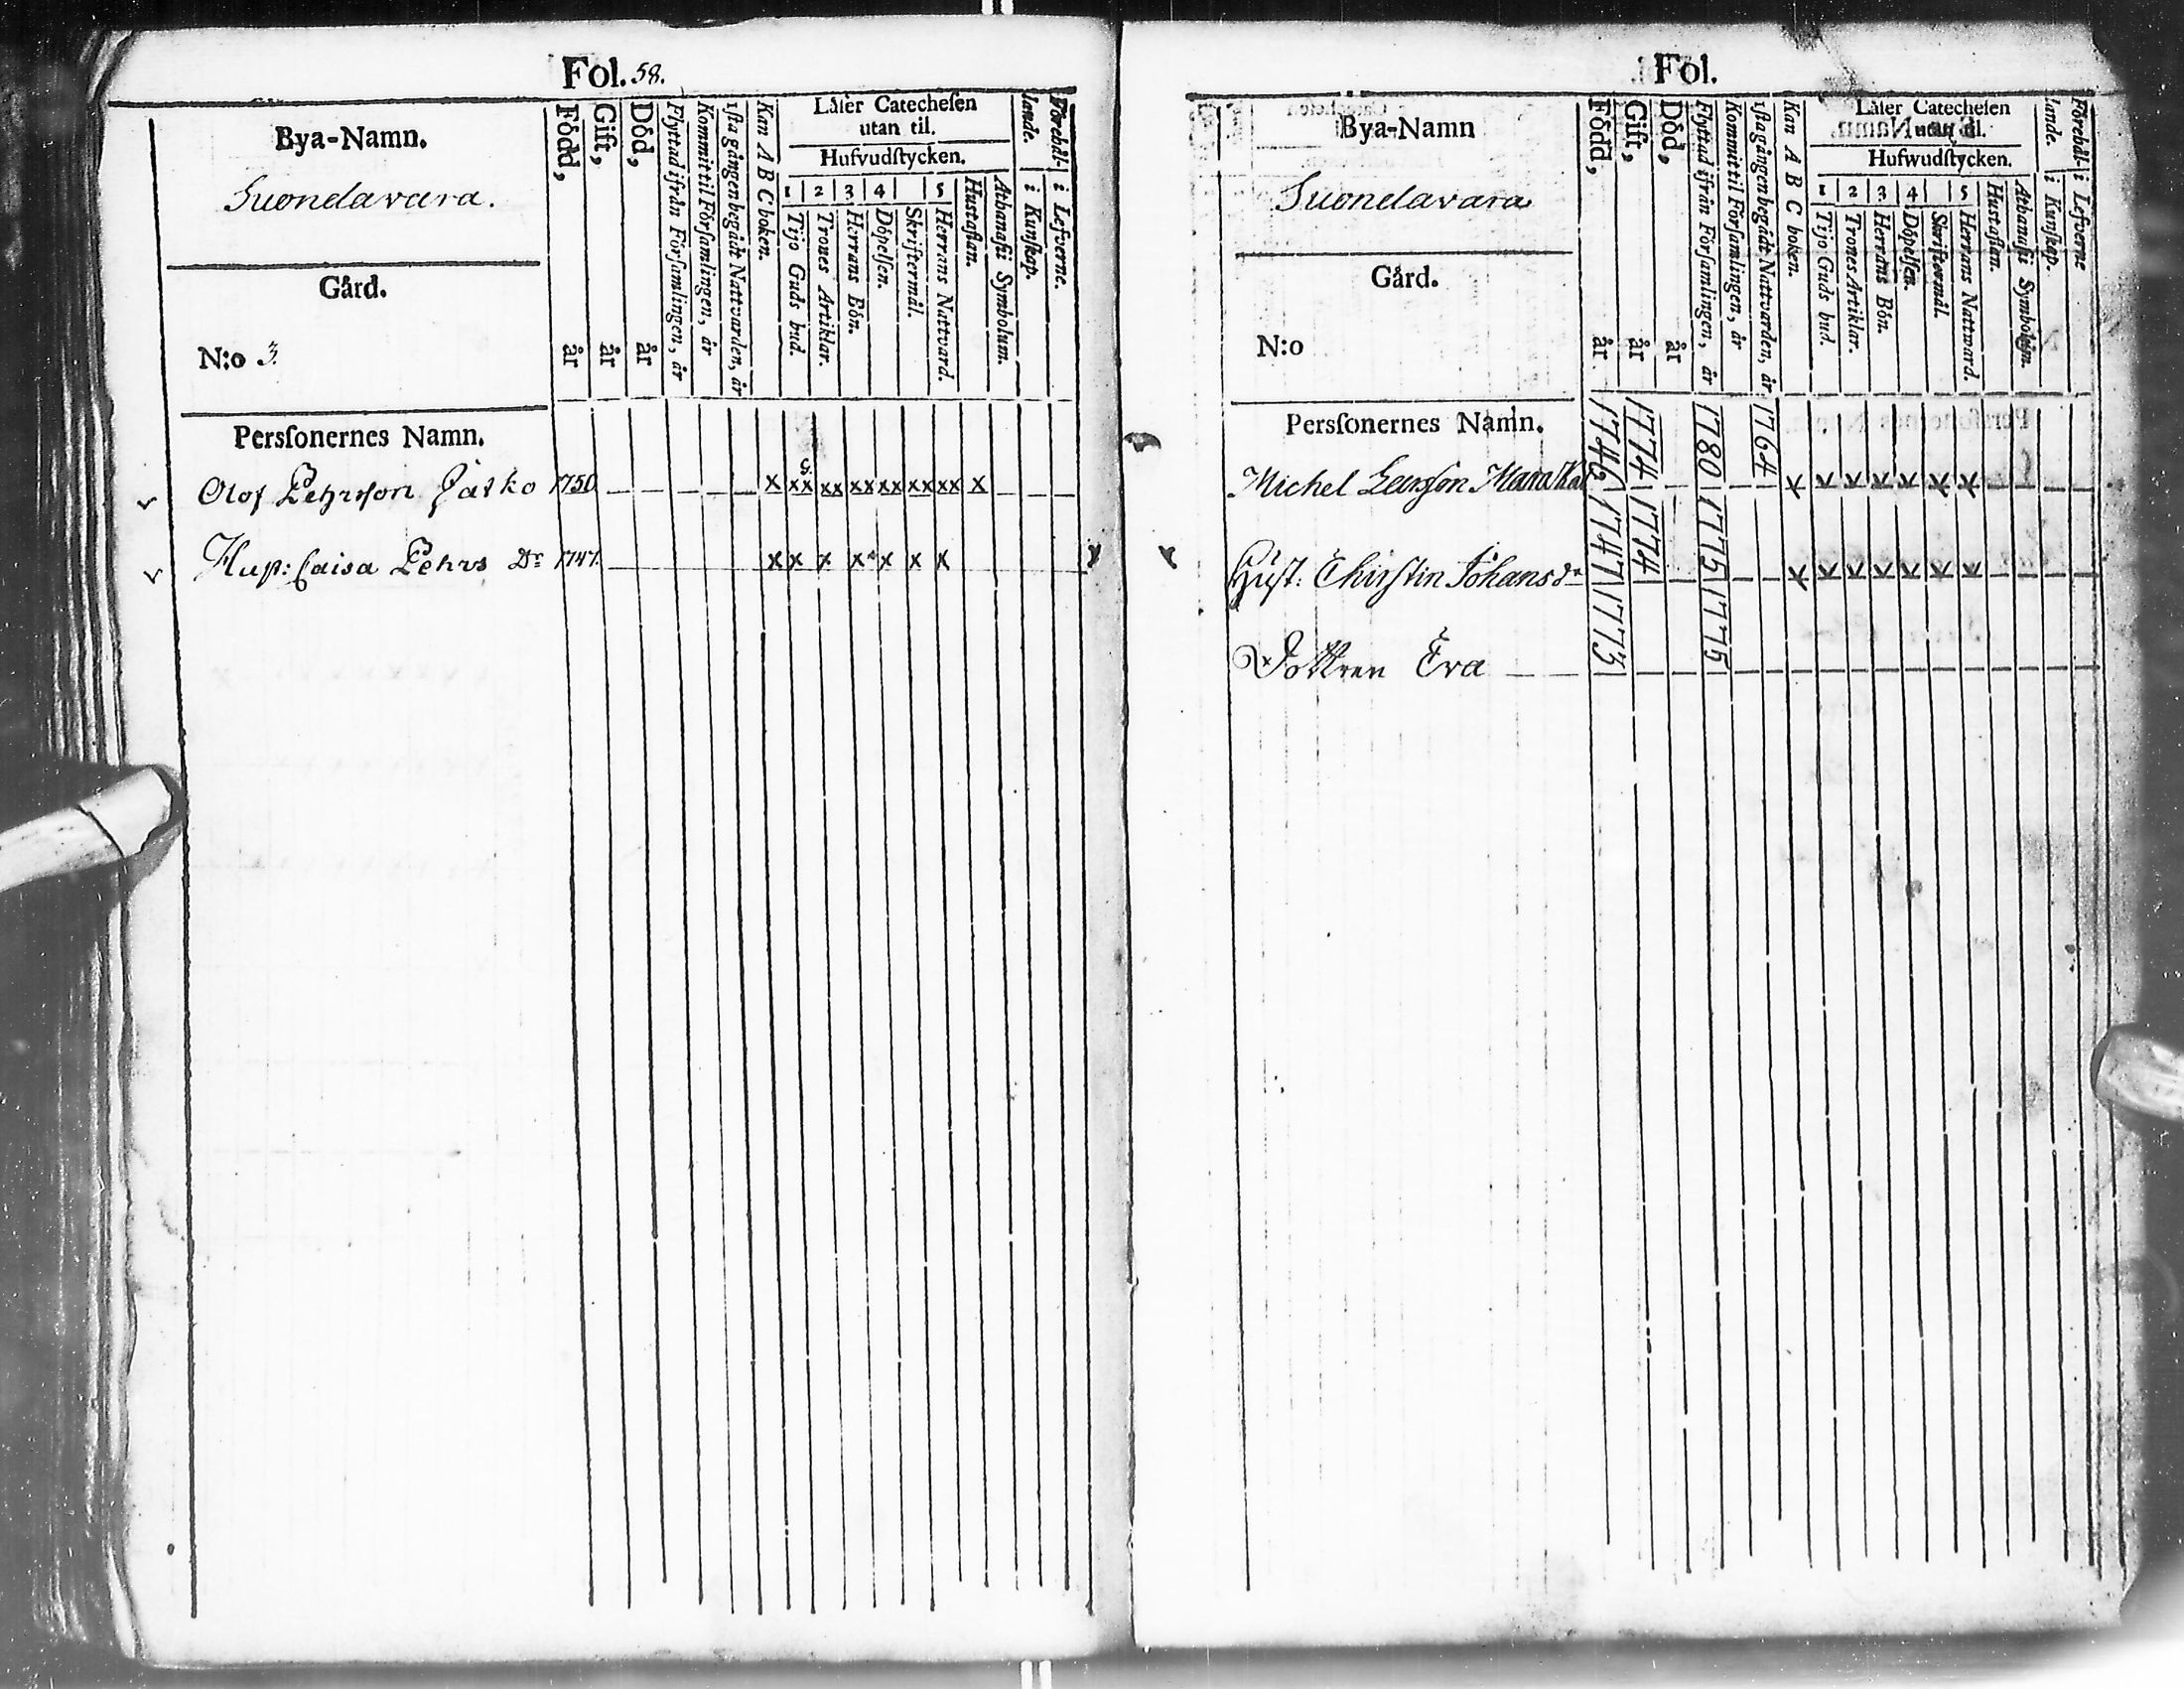 Fol. 58.
Bya-Namn.
Suondavara.
Gård.
N:o 3.
Född, år
Gift, år
Död, år
Flyttad ifrån Församlingen, år
Kommit til Församlingen, år
1sta gången begådt Nattvarden, år
Kan A B C boken.
Låser Catechesen
utan til.
Hufvudstycken.
1 2 3 4 5
Tijo Guds bud.
Trones Artiklar.
Herrans Bön.
Döpelsen.
Skriftermål.
Herrans Nattvard.
Hustaflan.
Athanasii Symbolum.
Förehål-lande.
i Kunskap.
i Lefverne.
Persfonernes Namn.
Olof Pehrsson 1750 x xx xx xx xx xx xx x
Hust: Caisa Pehrs Dr 1747. x x x x x x x
Fol.
Bya-Namn
Suondavara
Gård.
N:o
Född, år
Gift, år
Död, år
Flyttad ifrån Församlingen, år
Kommit til Församlingen, år
1sta gången begådt Nattvarden, år
Kan A B C boken.
Låser Catechesen
utan til.
Hufwudstycken.
1 2 3 4 5
Tijo Guds bud.
Trones Artiklar.
Herrans Bön.
Döpelsen.
Skriftermål.
Herrans Nattward.
Hustaflan.
Athanasii Symbolum.
Förehål-lande.
i Kunskap.
i Lefverne
Persfonernes Namn.
Michel Larsson 1746 1774 1780 1764 x x x x x x x
Hust: Christin Johans dr 1747 1774 1775 x x x x x x x
Dottren Eva 1773 1775